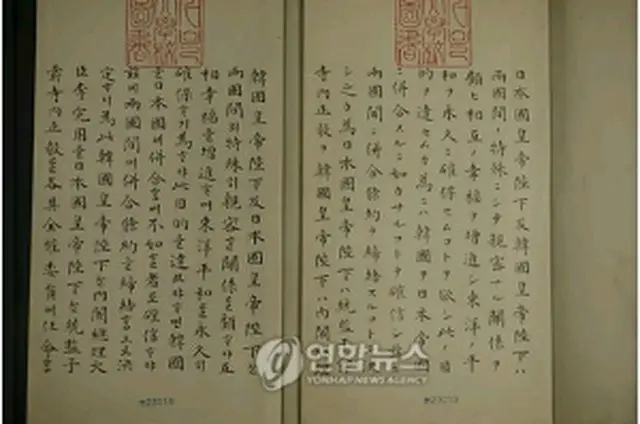 日本國皇帝陛下及韓國皇帝陛下ハ
兩國間ノ特殊ニシテ親密ナル關係ヲ
顧ヒ相互ノ幸福ヲ增進シ東洋ノ平
和ヲ永久ニ確保セムコトヲ欲シ此ノ目
的ヲ達セムカ為ニハ韓國ヲ日本帝國
ニ併合スルニ如カサルコトヲ確信シ
兩國間ニ併合條約ヲ締結スルコト
シ之カ為日本國皇帝陛下ハ統監子
寺內正毅ヲ韓國皇帝陛下ハ內閣
韓國皇帝陛下及日本國皇帝陛下는
兩國間의特殊히親密ᄒᆞᆫ關係를顧ᄒᆞ야互
相幸福을增進ᄒᆞ며東洋平和를永久히
確保ᄒᆞ기爲ᄒᆞ야此目的을達코쟈ᄒᆞ면韓國
을日本國에併合ᄒᆞᆷ에不如ᄒᆞᆫ者로確信ᄒᆞ야
茲에兩國間에併合條約을締結ᄒᆞᆷ으로決
定ᄒᆞ니爲此韓國皇帝陛下는內閣總理大
臣李完用을日本國皇帝陛下는統監子
爵寺內正毅를各其全權委員에任命ᄒᆞᆷ
연합뉴스
YONHAP NEWS AGENCY